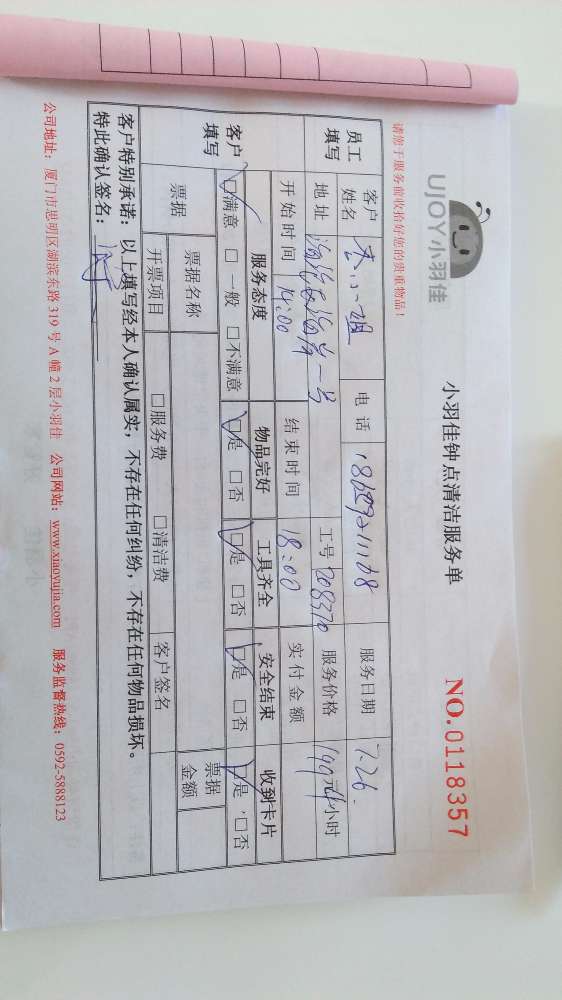 UJOY小羽佳
小羽佳钟点清洁服务单
NO.0118357
请您于服务前收拾好您的贵重物品！
员工填写 客户姓名 李小姐 电话 服务日期 7.26.
地址 工号 208370 服务价格 199元/4小时
开始时间 14:00 结束时间 18:00 实付金额
客户填写 服务态度 物品完好 工具齐全 安全结束 收到卡片
☑满意 □一般 □不满意 ☑是 □否 ☑是 □否 ☑是 □否 ☑是 □否
票据 票据名称 票据金额
开票项目 □服务费 □清洁费 客户签名
客户特别承诺：以上填写经本人确认属实，不存在任何纠纷，不存在任何物品损坏。
特此确认签名：
公司地址：厦门市思明区湖滨东路 319 号 A 幢 2 层小羽佳 公司网站：www.xiaoyujia.com 服务监督热线：0592-5888123